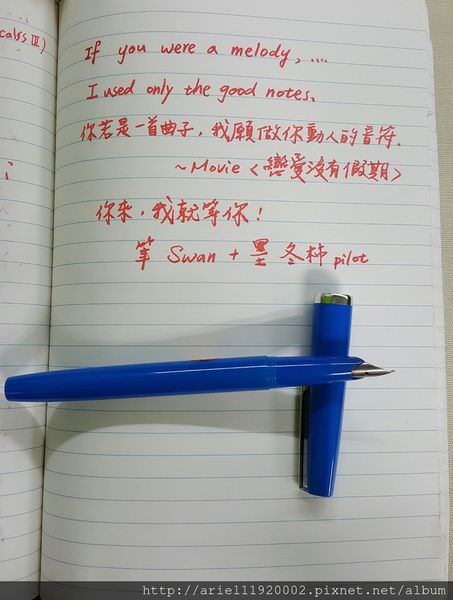 calss III)
If you were a melody, ....
I used only the good notes.
你若是一首曲子，我願做你動人的音符.
~Movie <戀愛沒有假期>
你來，我就等你！
筆 Swan + 墨 冬柿 pilot
http://ariel11920002.pixnet.net/album